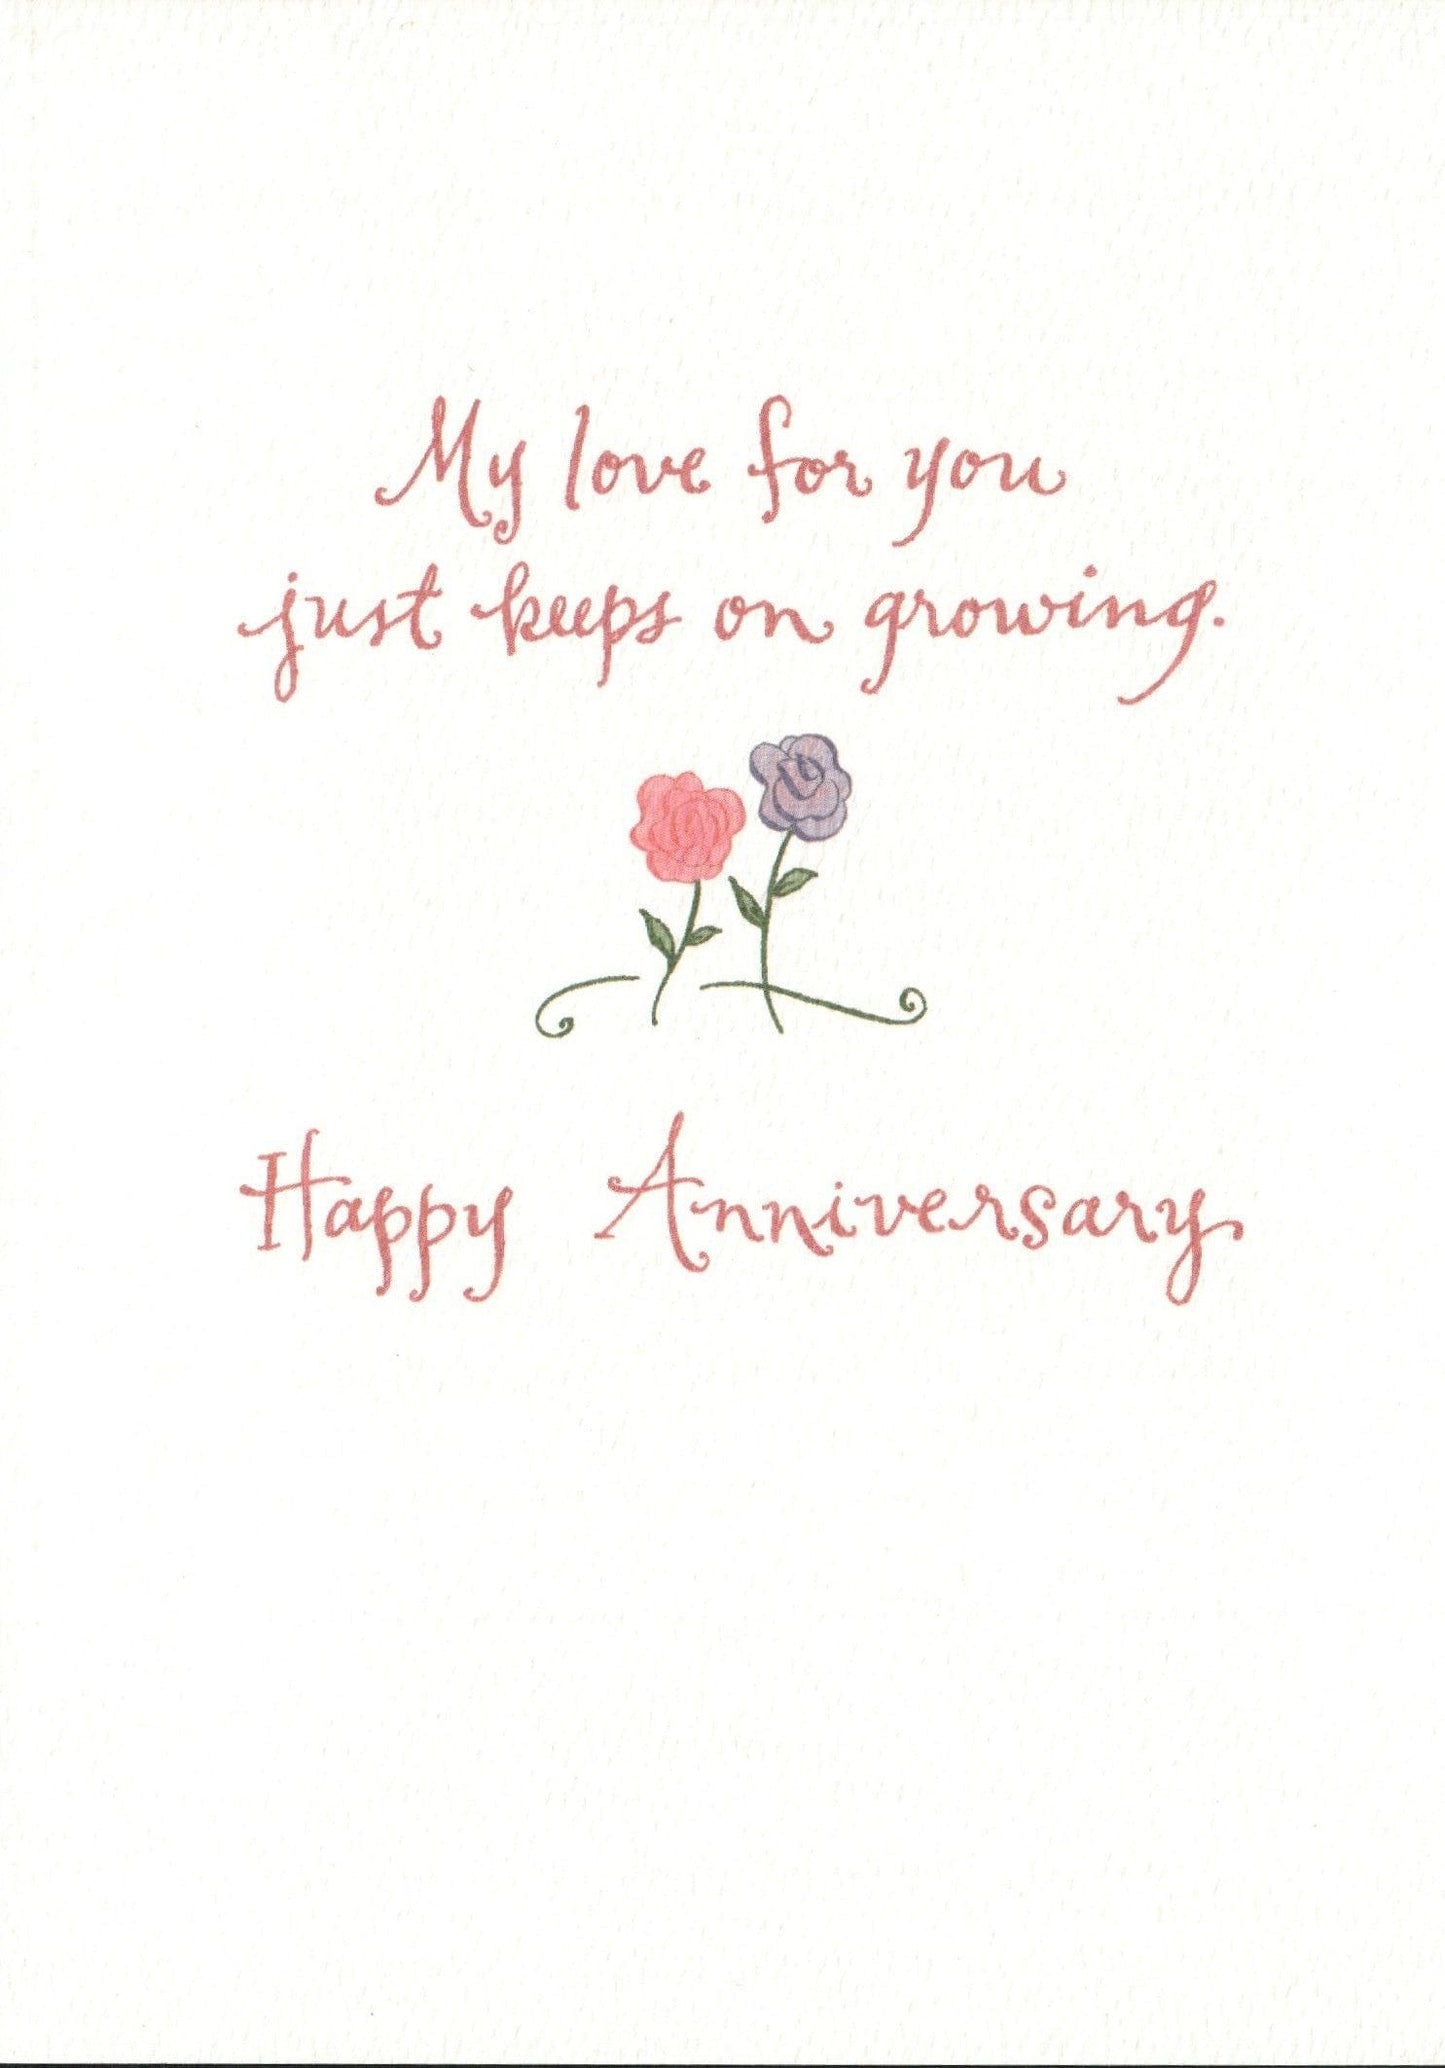 My love for you
just keeps on growing.
Happy Anniversary